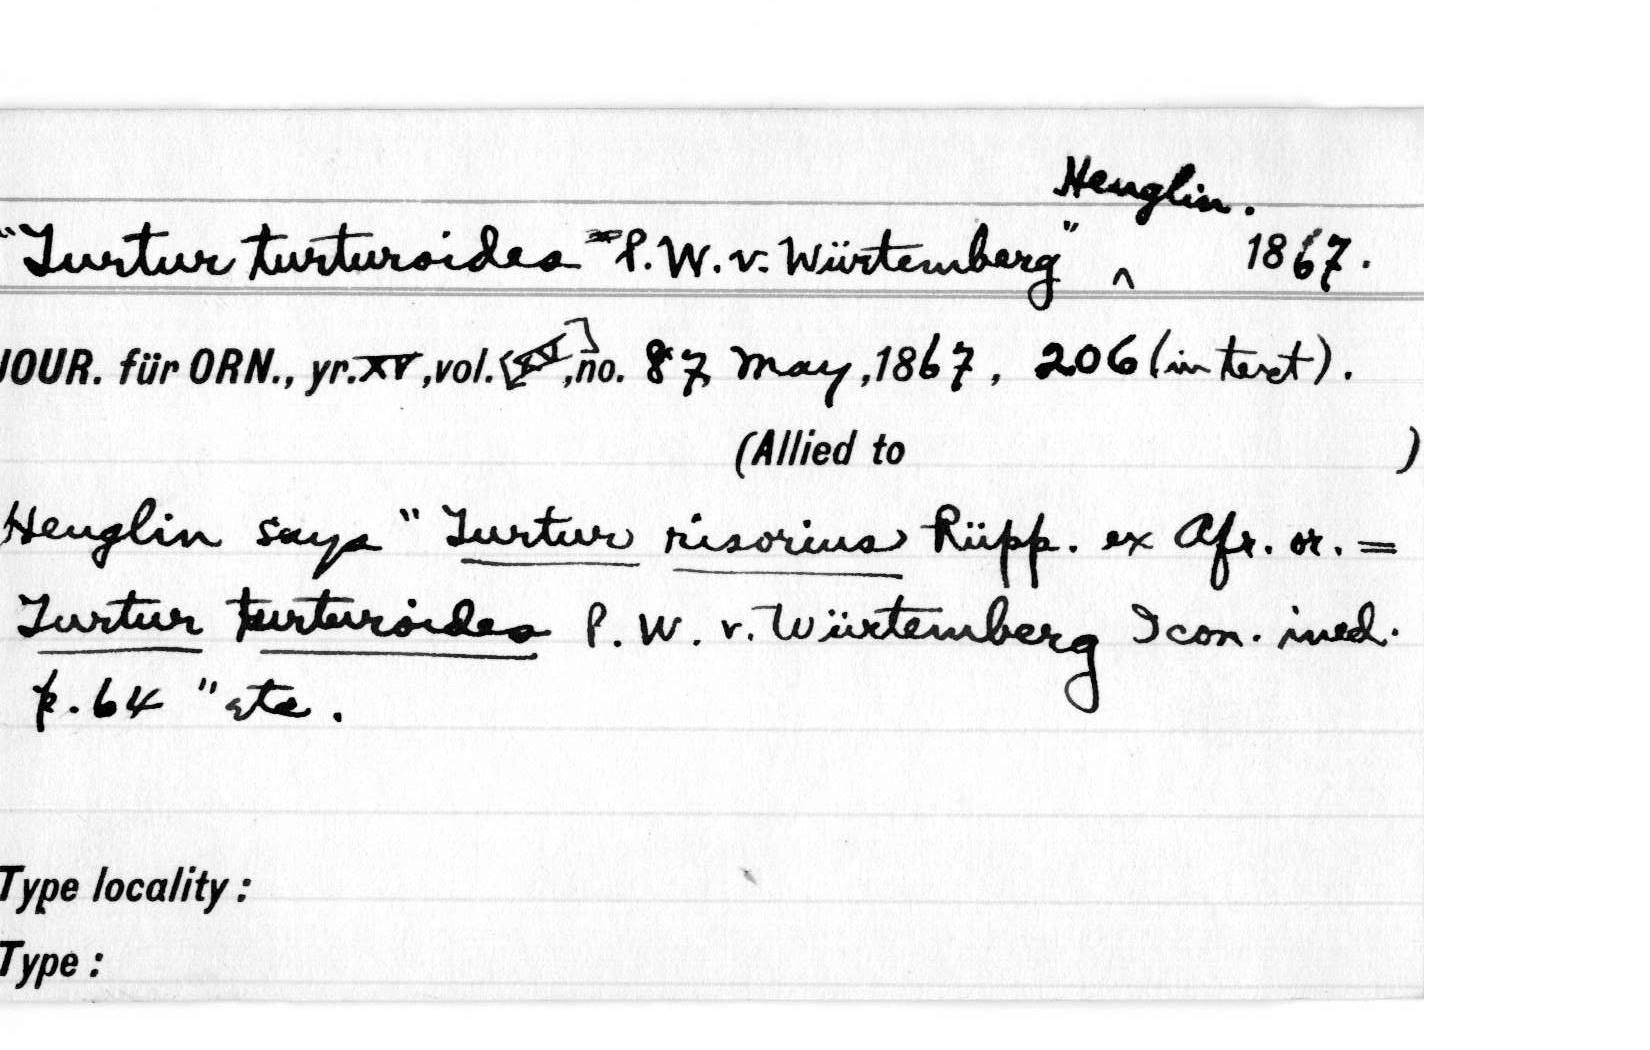 Heuglin.
"Turtur turturoides P. W. v. Würtemberg" ^ 1867.
JOUR. für ORN., yr. XV, vol. [XV], no. 87, May, 1867, 206 (in text).
(Allied to )
Heuglin says "Turtur risorius Rüpp. ex Afr. or. =
Turtur turturoides P. W. v. Würtemberg Icon. ined.
p. 64" etc.
Type locality:
Type: